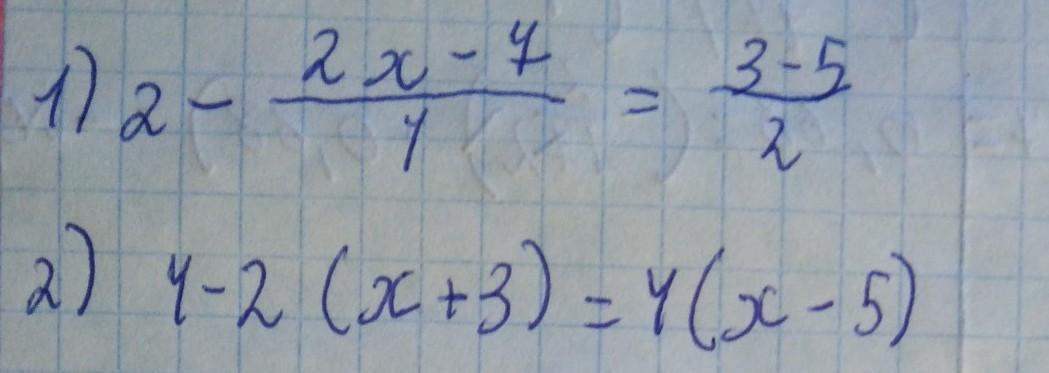 1) 2 - \frac{2x-7}{4} = \frac{3-5}{2}
2) 4-2(x+3)=4(x-5)